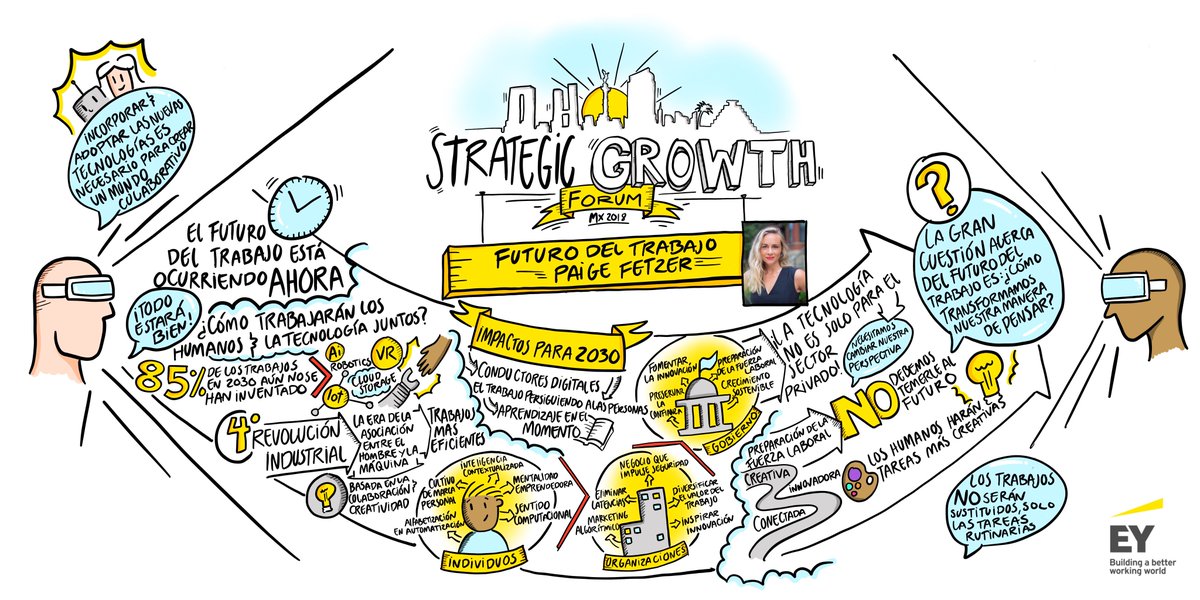 STRATEGIC GROWTH
FORUM
MX 2018
FUTURO DEL TRABAJO
PAIGE FETZER
INCORPORAR &
ADOPTAR LAS NUEVAS
TECNOLOGÍAS ES
NECESARIO PARA CREAR
UN MUNDO
COLABORATIVO
EL FUTURO
DEL TRABAJO ESTÁ
OCURRIENDO AHORA
¡TODO
ESTARÁ
BIEN!
¿CÓMO TRABAJARÁN LOS
HUMANOS & LA TECNOLOGÍA JUNTOS?
85% DE LOS TRABAJOS
EN 2030 AÚN NO SE
HAN INVENTADO
Ai
ROBOTICS
VR
CLOUD
STORAGE
IoT
4ª REVOLUCIÓN
INDUSTRIAL
LA ERA DE LA
ASOCIACIÓN
ENTRE EL
HOMBRE Y LA
MÁQUINA
TRABAJOS
MÁS
EFICIENTES
BASADA EN LA
COLABORACIÓN &
CREATIVIDAD
IMPACTOS PARA 2030
CONDUCTORES DIGITALES
EL TRABAJO PERSIGUIENDO A LAS PERSONAS
APRENDIZAJE EN EL
MOMENTO
INTELIGENCIA
CONTEXTUALIZADA
CULTIVO
DE MARCA
PERSONAL
MENTALIDAD
EMPRENDEDORA
SENTIDO
COMPUTACIONAL
ALFABETIZACIÓN
EN AUTOMATIZACIÓN
INDIVIDUOS
NEGOCIO QUE
IMPULSE SEGURIDAD
ELIMINAR
LATENCIAS
DIVERSIFICAR
EL VALOR DEL
TRABAJO
MARKETING
ALGORÍTMICO
INSPIRAR
INNOVACIÓN
ORGANIZACIONES
FOMENTAR
LA INNOVACIÓN
PREPARACIÓN
DE LA FUERZA
LABORAL
PRESERVAR
LA
CONFIANZA
CRECIMIENTO
SOSTENIBLE
GOBIERNO
¡LA TECNOLOGÍA
NO ES SOLO PARA EL
SECTOR
PRIVADO!
NECESITAMOS
CAMBIAR NUESTRA
PERSPECTIVA
NO DEBEMOS
TEMERLE AL
FUTURO
PREPARACIÓN DE LA
FUERZA LABORAL
CREATIVA
INNOVADORA
CONECTADA
LOS HUMANOS HARÁN
TAREAS MÁS CREATIVAS
?
LA GRAN
CUESTIÓN ACERCA
DEL FUTURO DEL
TRABAJO ES: ¿CÓMO
TRANSFORMAMOS
NUESTRA MANERA
DE PENSAR?
LOS TRABAJOS
NO SERÁN
SUSTITUIDOS, SOLO
LAS TAREAS
RUTINARIAS
EY
Building a better
working world